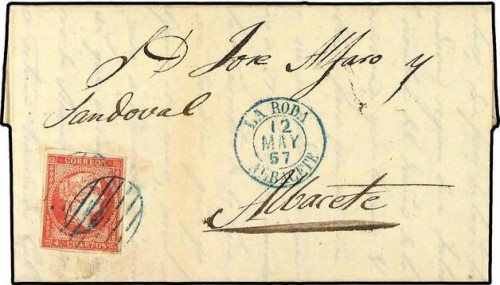 S D Jose Alfaro y
Sandoval
LA RODA
12
MAY
57
ALBACETE
Albacete
CORREOS
4 CUARTOS